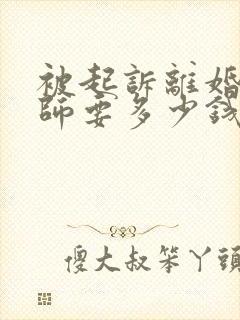 被起訴離婚
師要多少錢
傻大叔笨丫頭